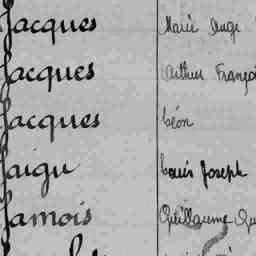 Jacques Marie Ange
Jacques Arthur Franço
Jacques Léon
Jaigu Louis Joseph
Jamois Guillaume